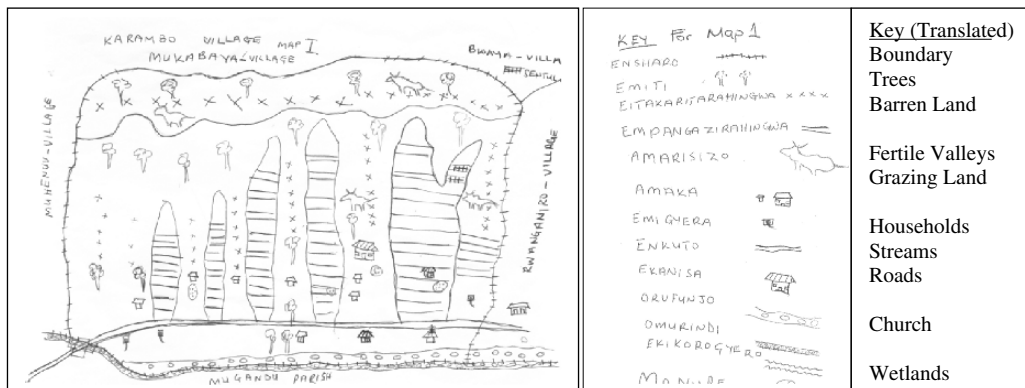 KARAMBO VILLAGE MAP I
MUKABAYA-VILLAGE
BWAMA-VILLA
MUHENVU-VILLAGE
RWANGANIRO-VILLAGE
MUGANDU PARISH
KEY For Map 1
ENSHARO
EMITI
EITAKARITARAHINGWA
EMPANGAZIRAHINGWA
AMARISIZO
AMAKA
EMIGYERA
ENKUTO
EKANISA
ORUFUNJO
OMURINDI
EKIKOROGYERO
Key (Translated)
Boundary
Trees
Barren Land
Fertile Valleys
Grazing Land
Households
Streams
Roads
Church
Wetlands